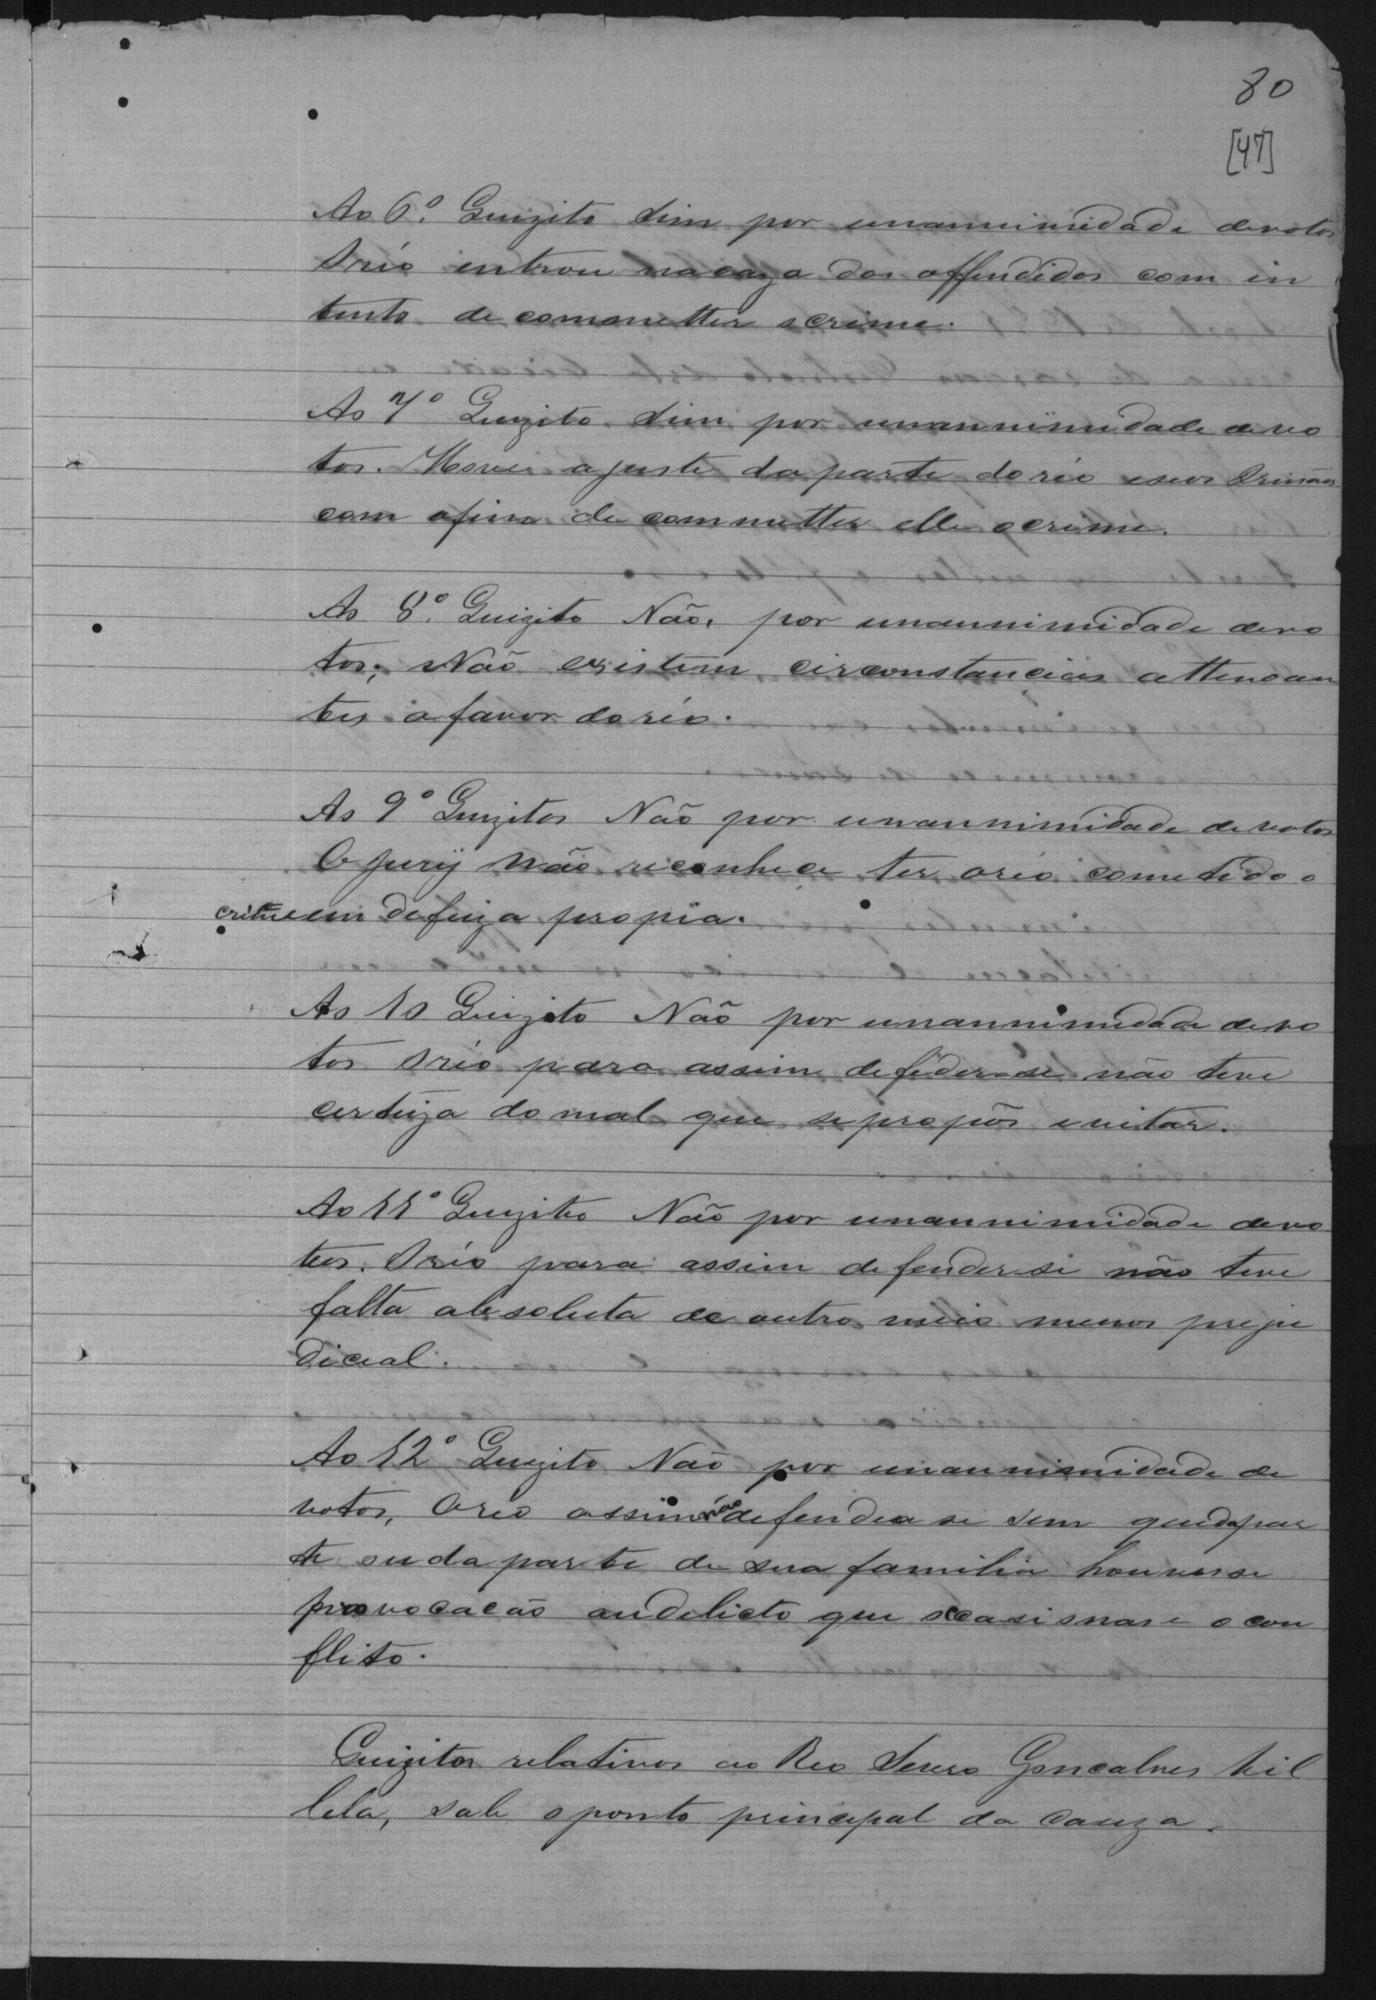 80
[47]
Ao 6º. Quizito Sim por unannimidade devotos
Oréo entrou nacaza dos offendidos com in
tento de commetter ocrime.
Ao 7º Quizito Sim por unannimidade devo
tos. Houve ajuste da parte doréo eseos Irmãos
com ofim de commetter elle ocrime.
Ao 8º. Quizito Não, por unannimidade devo
tos; Não existem circonstancias attenoan
tes a favor doréo.
Ao 9º Quizitos Não por unannimidade devotos
O jury não reconhece ter oréo cometido o
crime em defeiza propia.
Ao 10 Quizito Não por unannimidade devo
tos Oréo para assim defeder-se não teve
certeiza domal que sepropôs evitar.
Ao 11º Quizito Não por unannimidade devo
tos. Oréo para assim defenderse não teve
falta absoluta de outro meio menos preju
dicial.
Ao 12º Quizito Não por unannimidade de
votos, Oreo assim não defendeose sem quedapar
te oudaparte de sua familia houvesse
provocacão oudelicto que occasionase o con
flito.
Quizitos relativos ao Reo Gonçalves Vil
lela, sob o ponto principal da cauza.